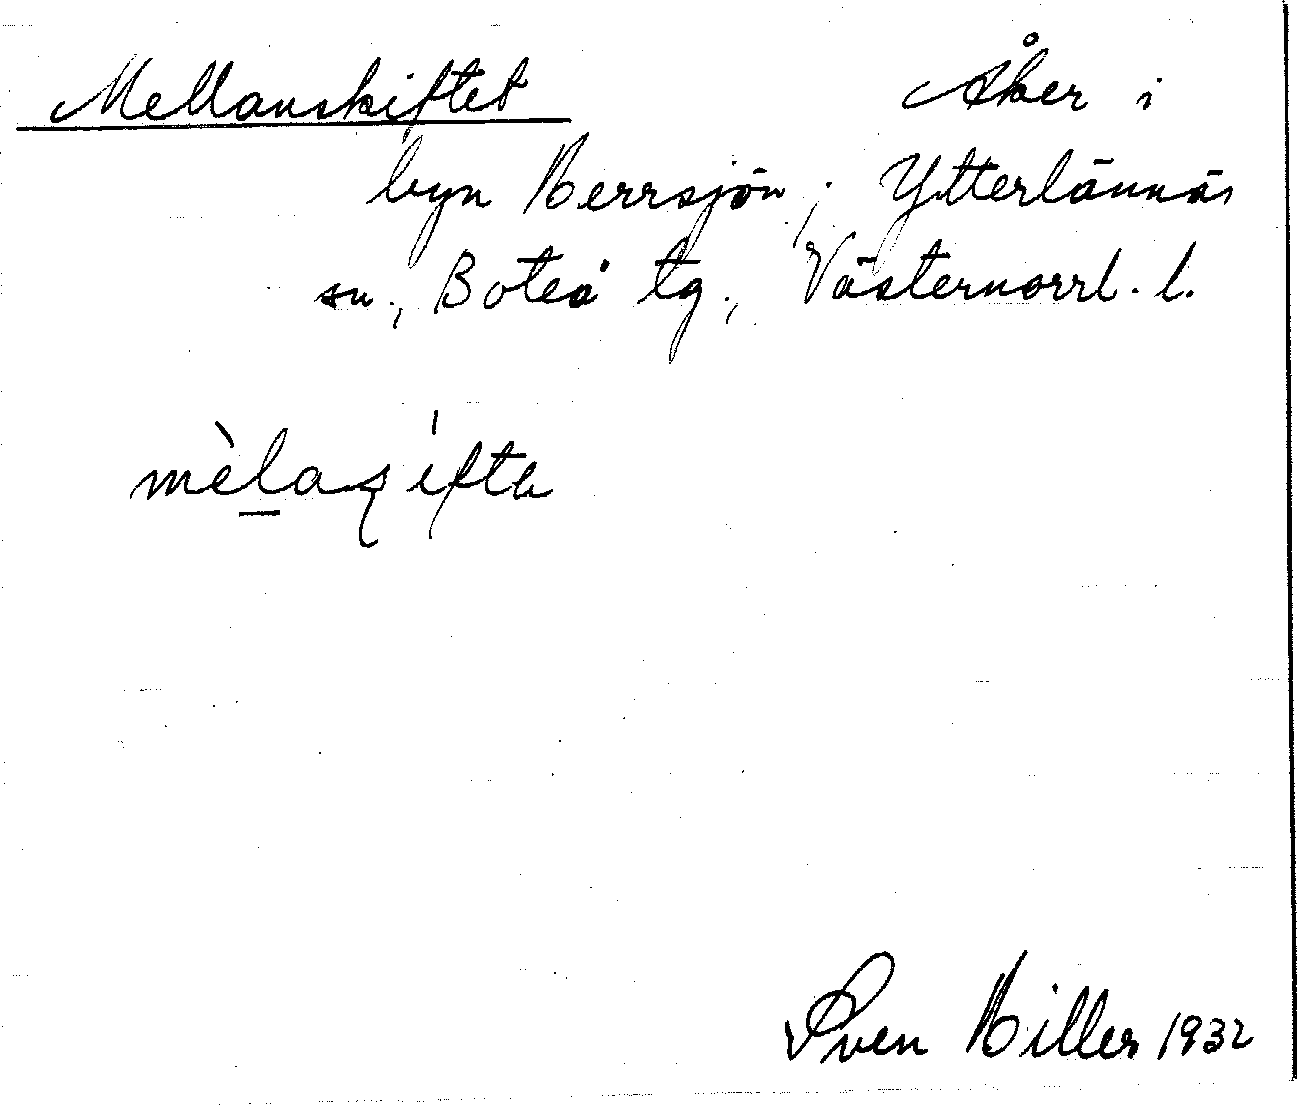 Mellanskiftet Åker i
byn Herrsjön, Ytterlännäs
sn., Boteå tg., Västernorrl. l.
Sven Hiller 1932